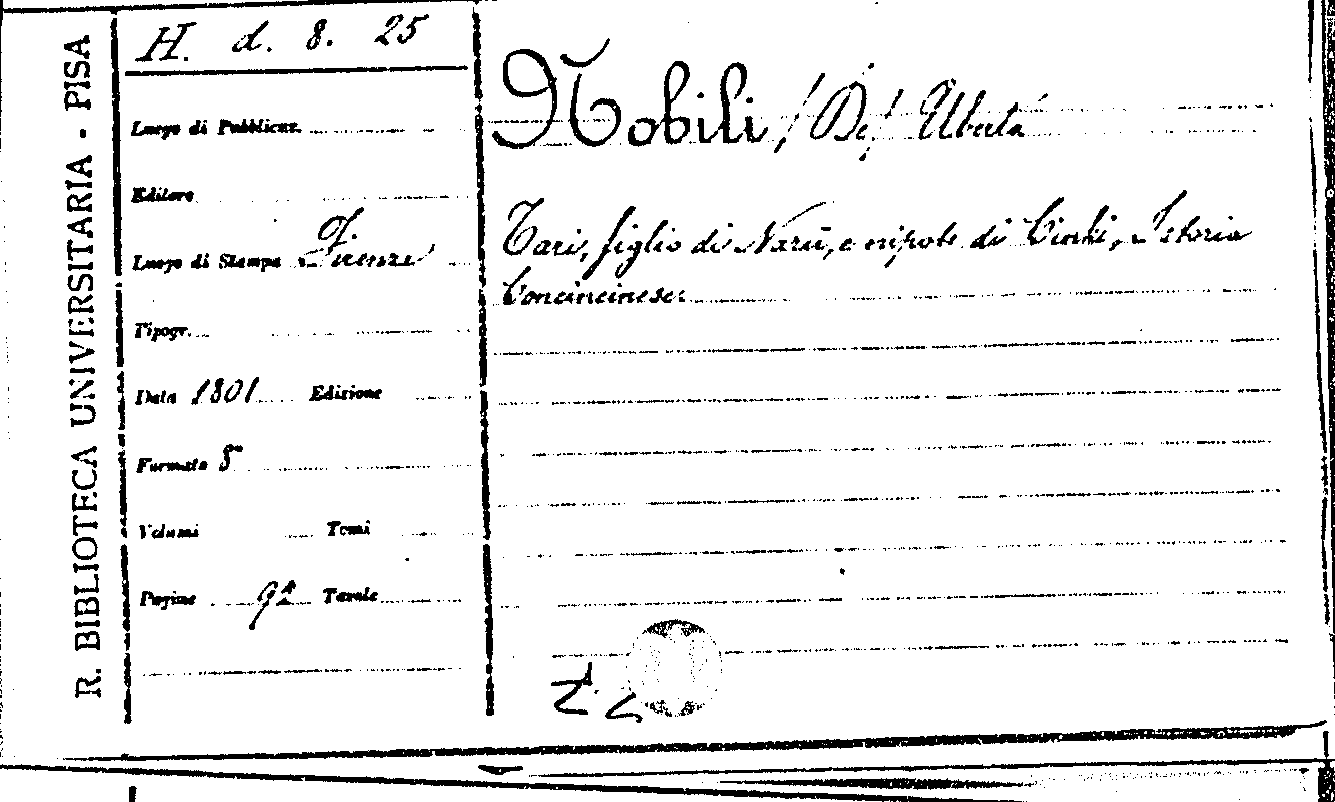 R. BIBLIOTECA UNIVERSITARIA - PISA
H. d. 8. 25
Luogo di Pubblicaz.
Editore
Luogo di Stampa Firenze
Tipogr.
Data 1801 Edizione
Formato 8°
Volumi Tomi
Pagine 92 Tavole
Nobili (De) Uberto
Tari, figlio di Narü, e nipote di Istoria
Concincinese.